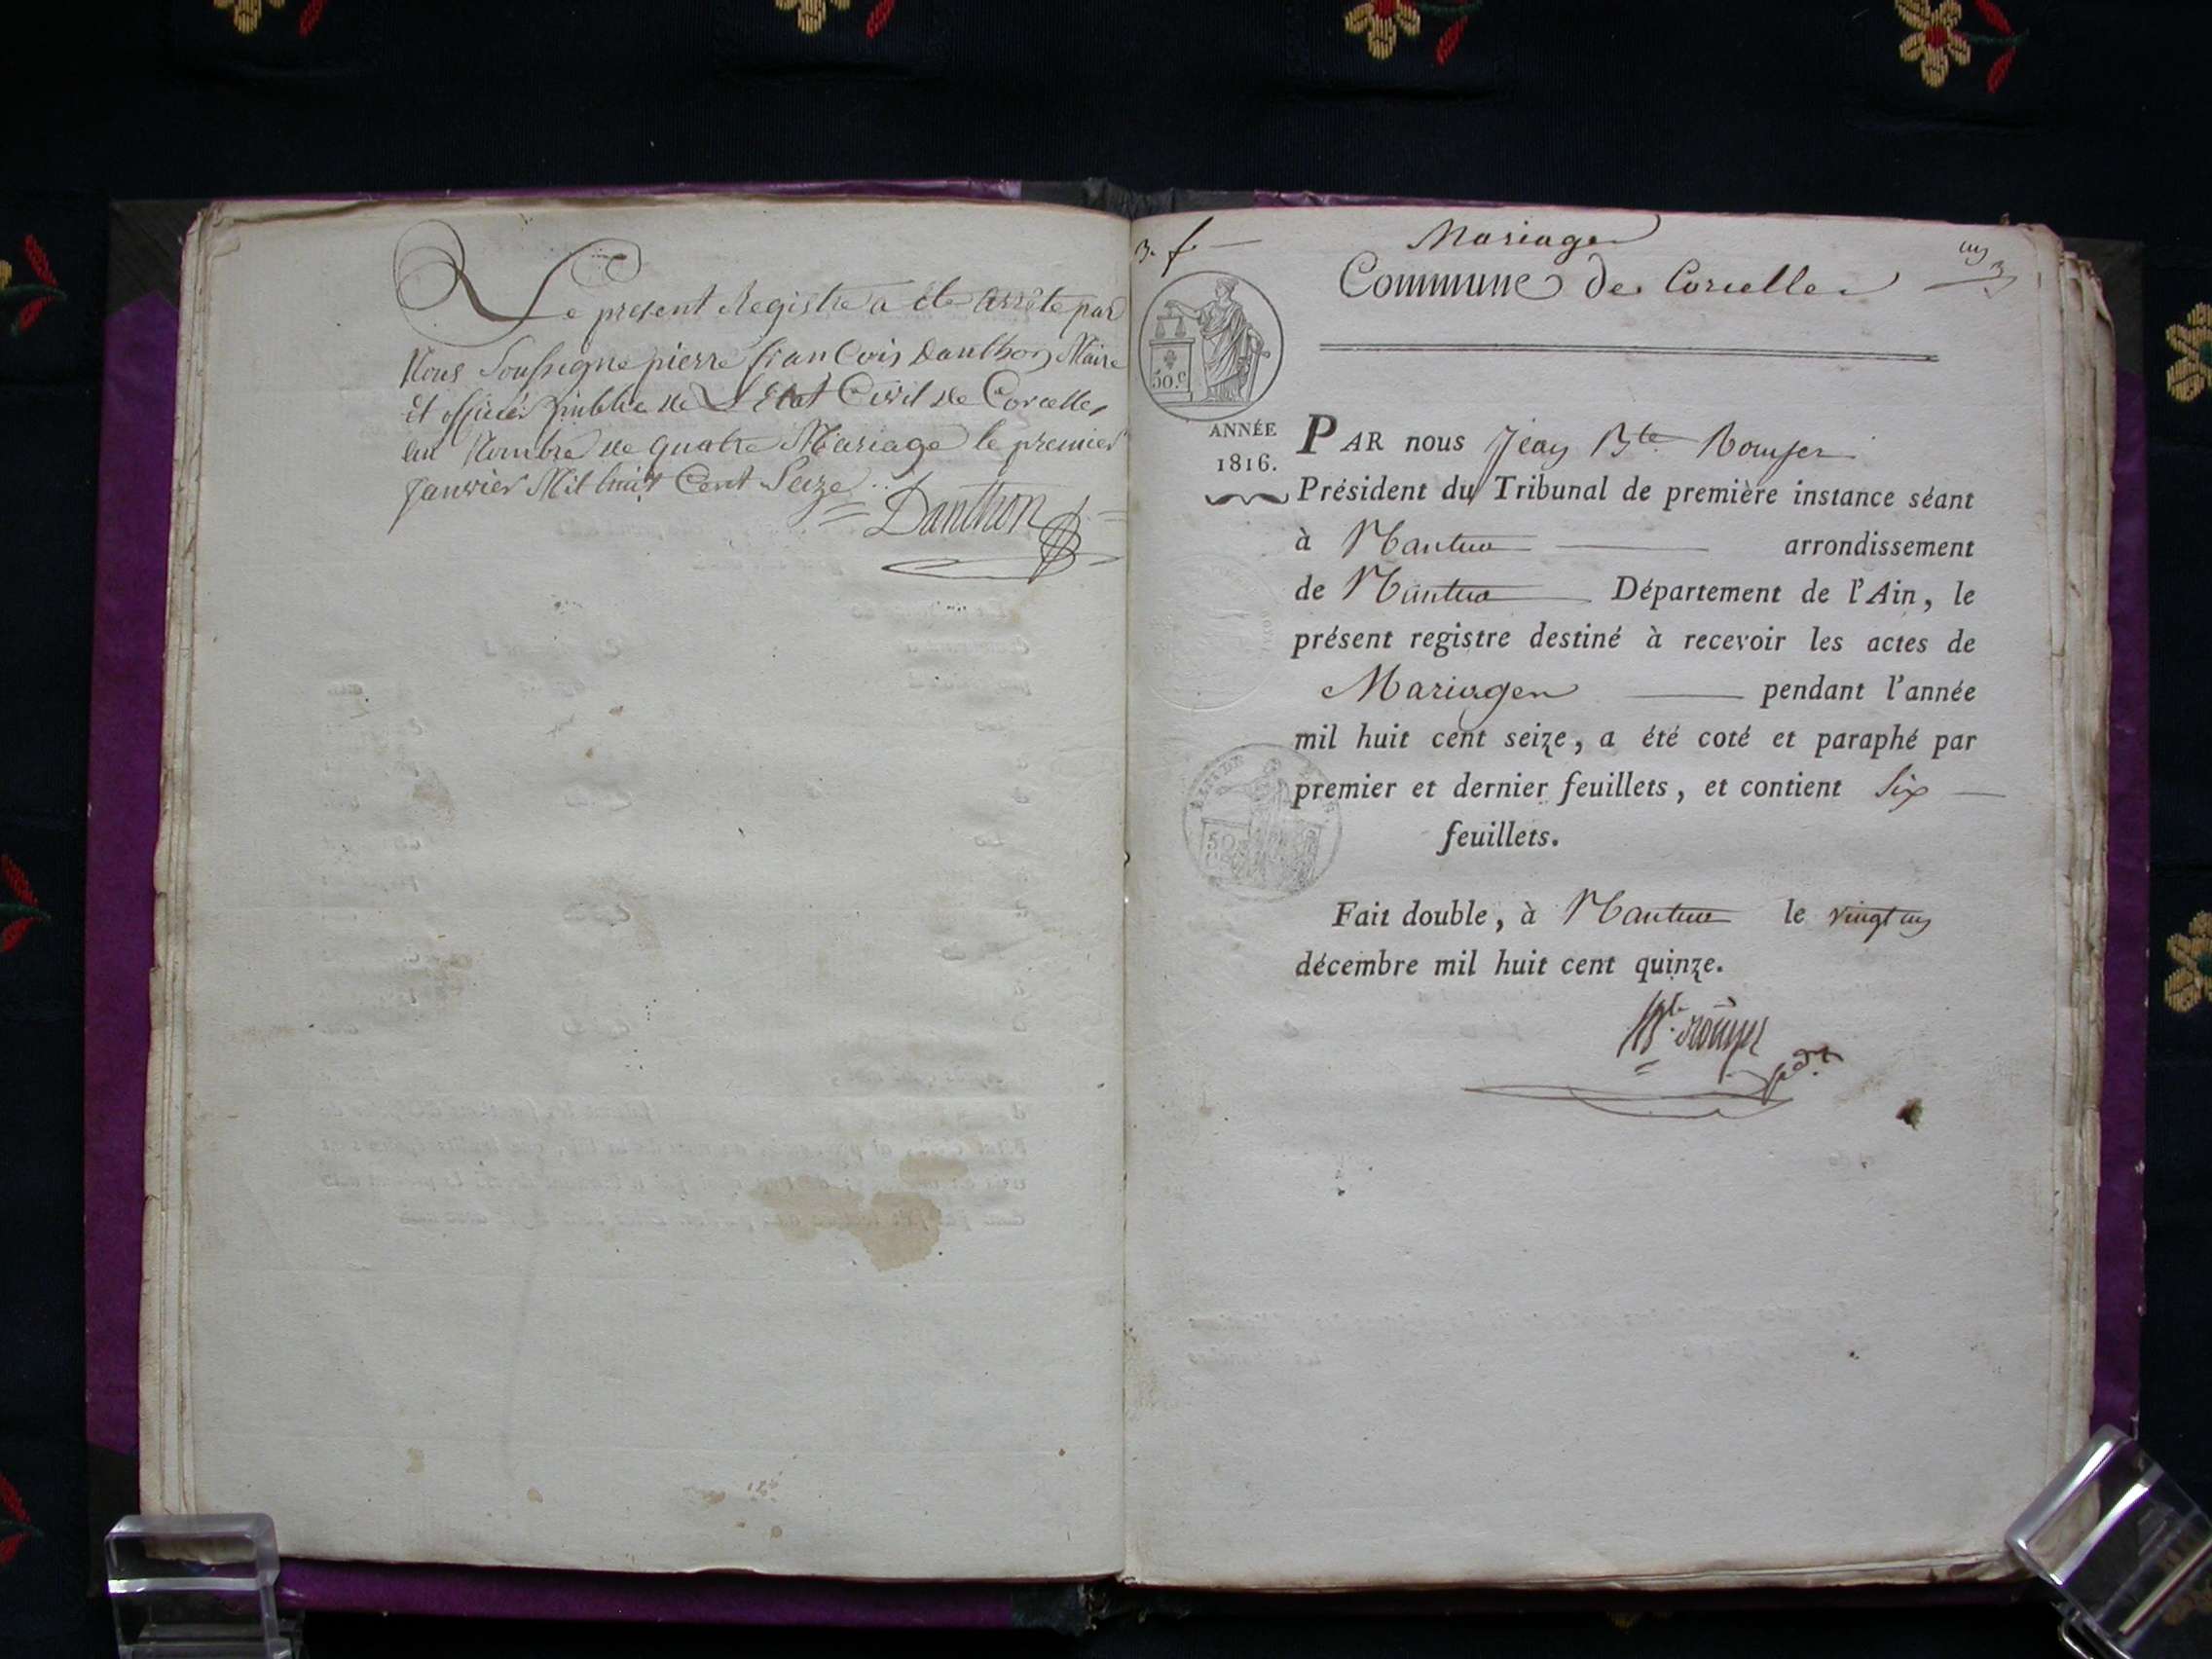 Le present Registre a ete arrête par
Nous Soussigne pierre francois Danthon Maire
Et officier publie de L'Etat Civil de Corcelles
au Nombre de quatre Mariage le premier
Janvier Mil huit Cent Seize
Danthon
3. f.
Mariages
Commune de Corcelles
50.C
ANNÉE
1816.
PAR nous Jean Bte
Président du Tribunal de première instance séant
à Nantua arrondissement
de Nantua Département de l'Ain, le
présent registre destiné à recevoir les actes de
Mariages pendant l'année
mil huit cent seize, a été coté et paraphé par
premier et dernier feuillets, et contient Six
feuillets.
Fait double, à Nantua le vingt un
décembre mil huit cent quinze.